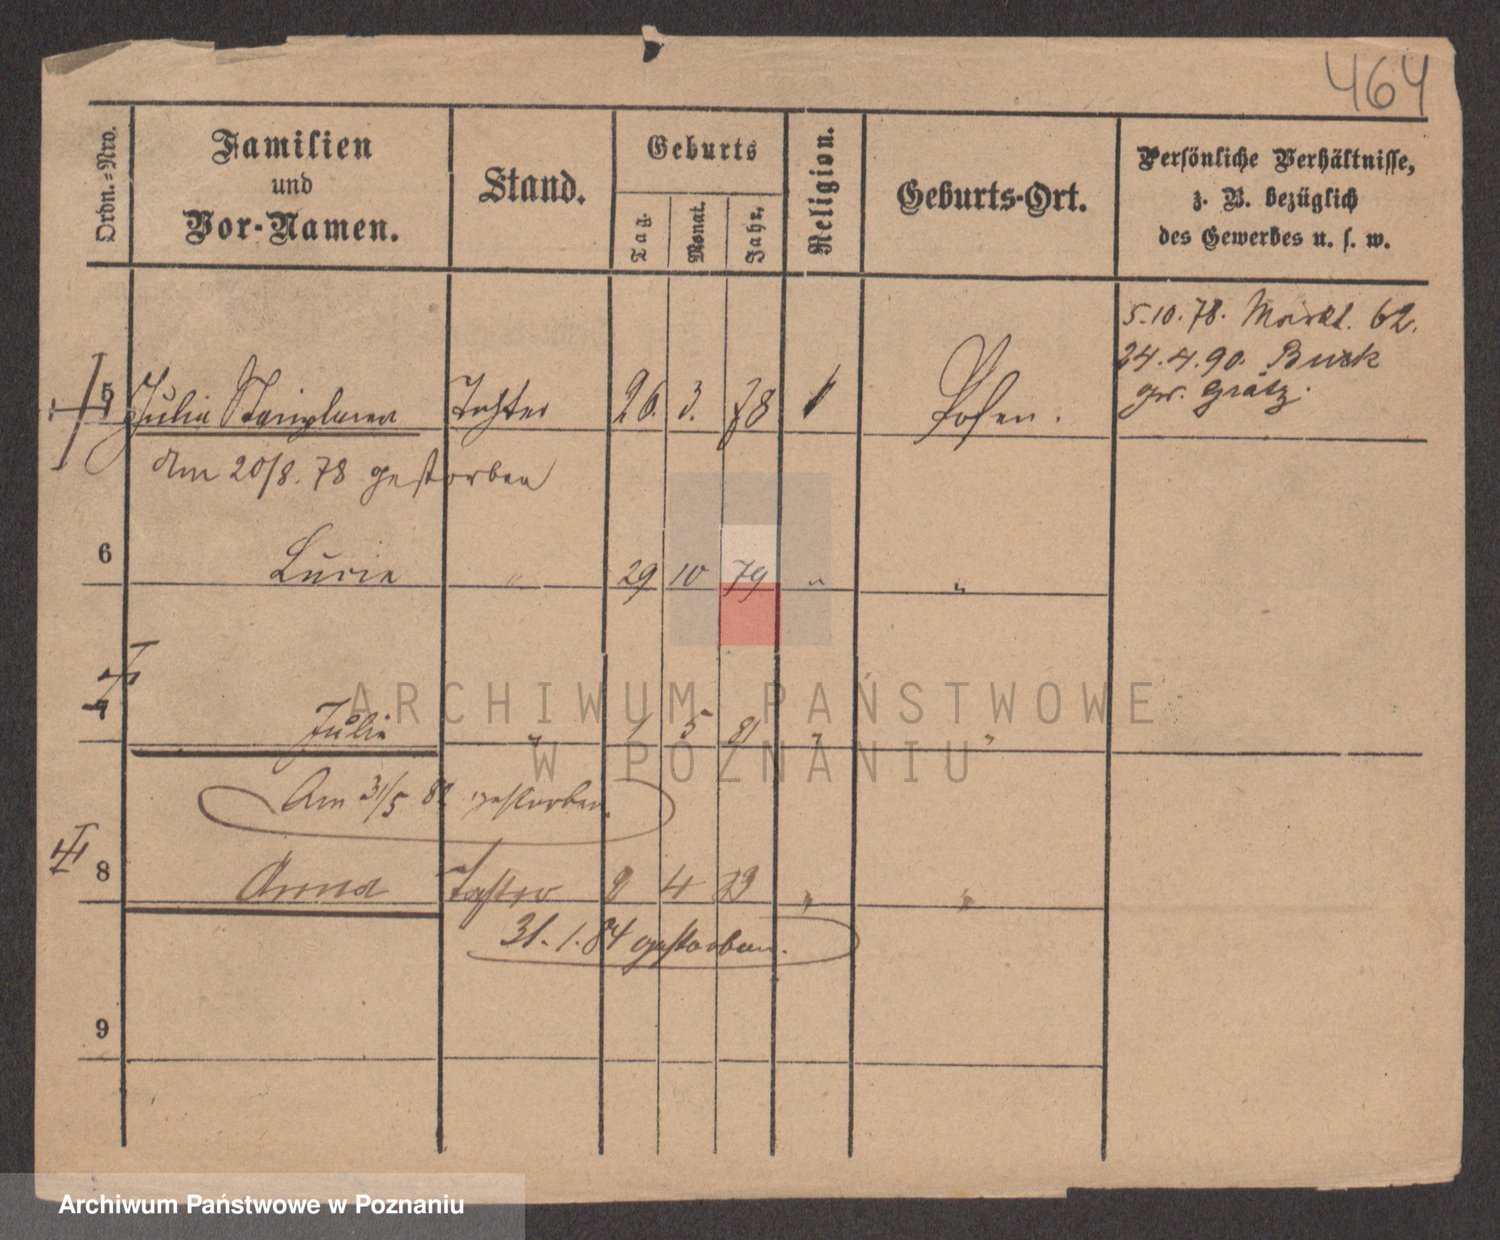 464
Ordn.=Nro.
Familien
und
Vor-Namen.
Stand.
Geburts
Tag.
Monat.
Jahr.
Religion.
Geburts-Ort.
Persönliche Verhältnisse,
z. B. bezüglich
des Gewerbes u. s. w.
5.10.78. Markt. 62.
24.4.90. Buck
Grätz.
5 Julia Tochter 26. 3. 78 Posen.
am 20/8. 78 gestorben
6 Lucie " 29 10 79 " "
7 Julie " 1 5 81 " "
Am 31/5 82 gestorben.
8 Anna Tochter 4 " "
31.1.84 gestorben.
9
ARCHIWUM PAŃSTWOWE
W POZNANIU
Archiwum Państwowe w Poznaniu